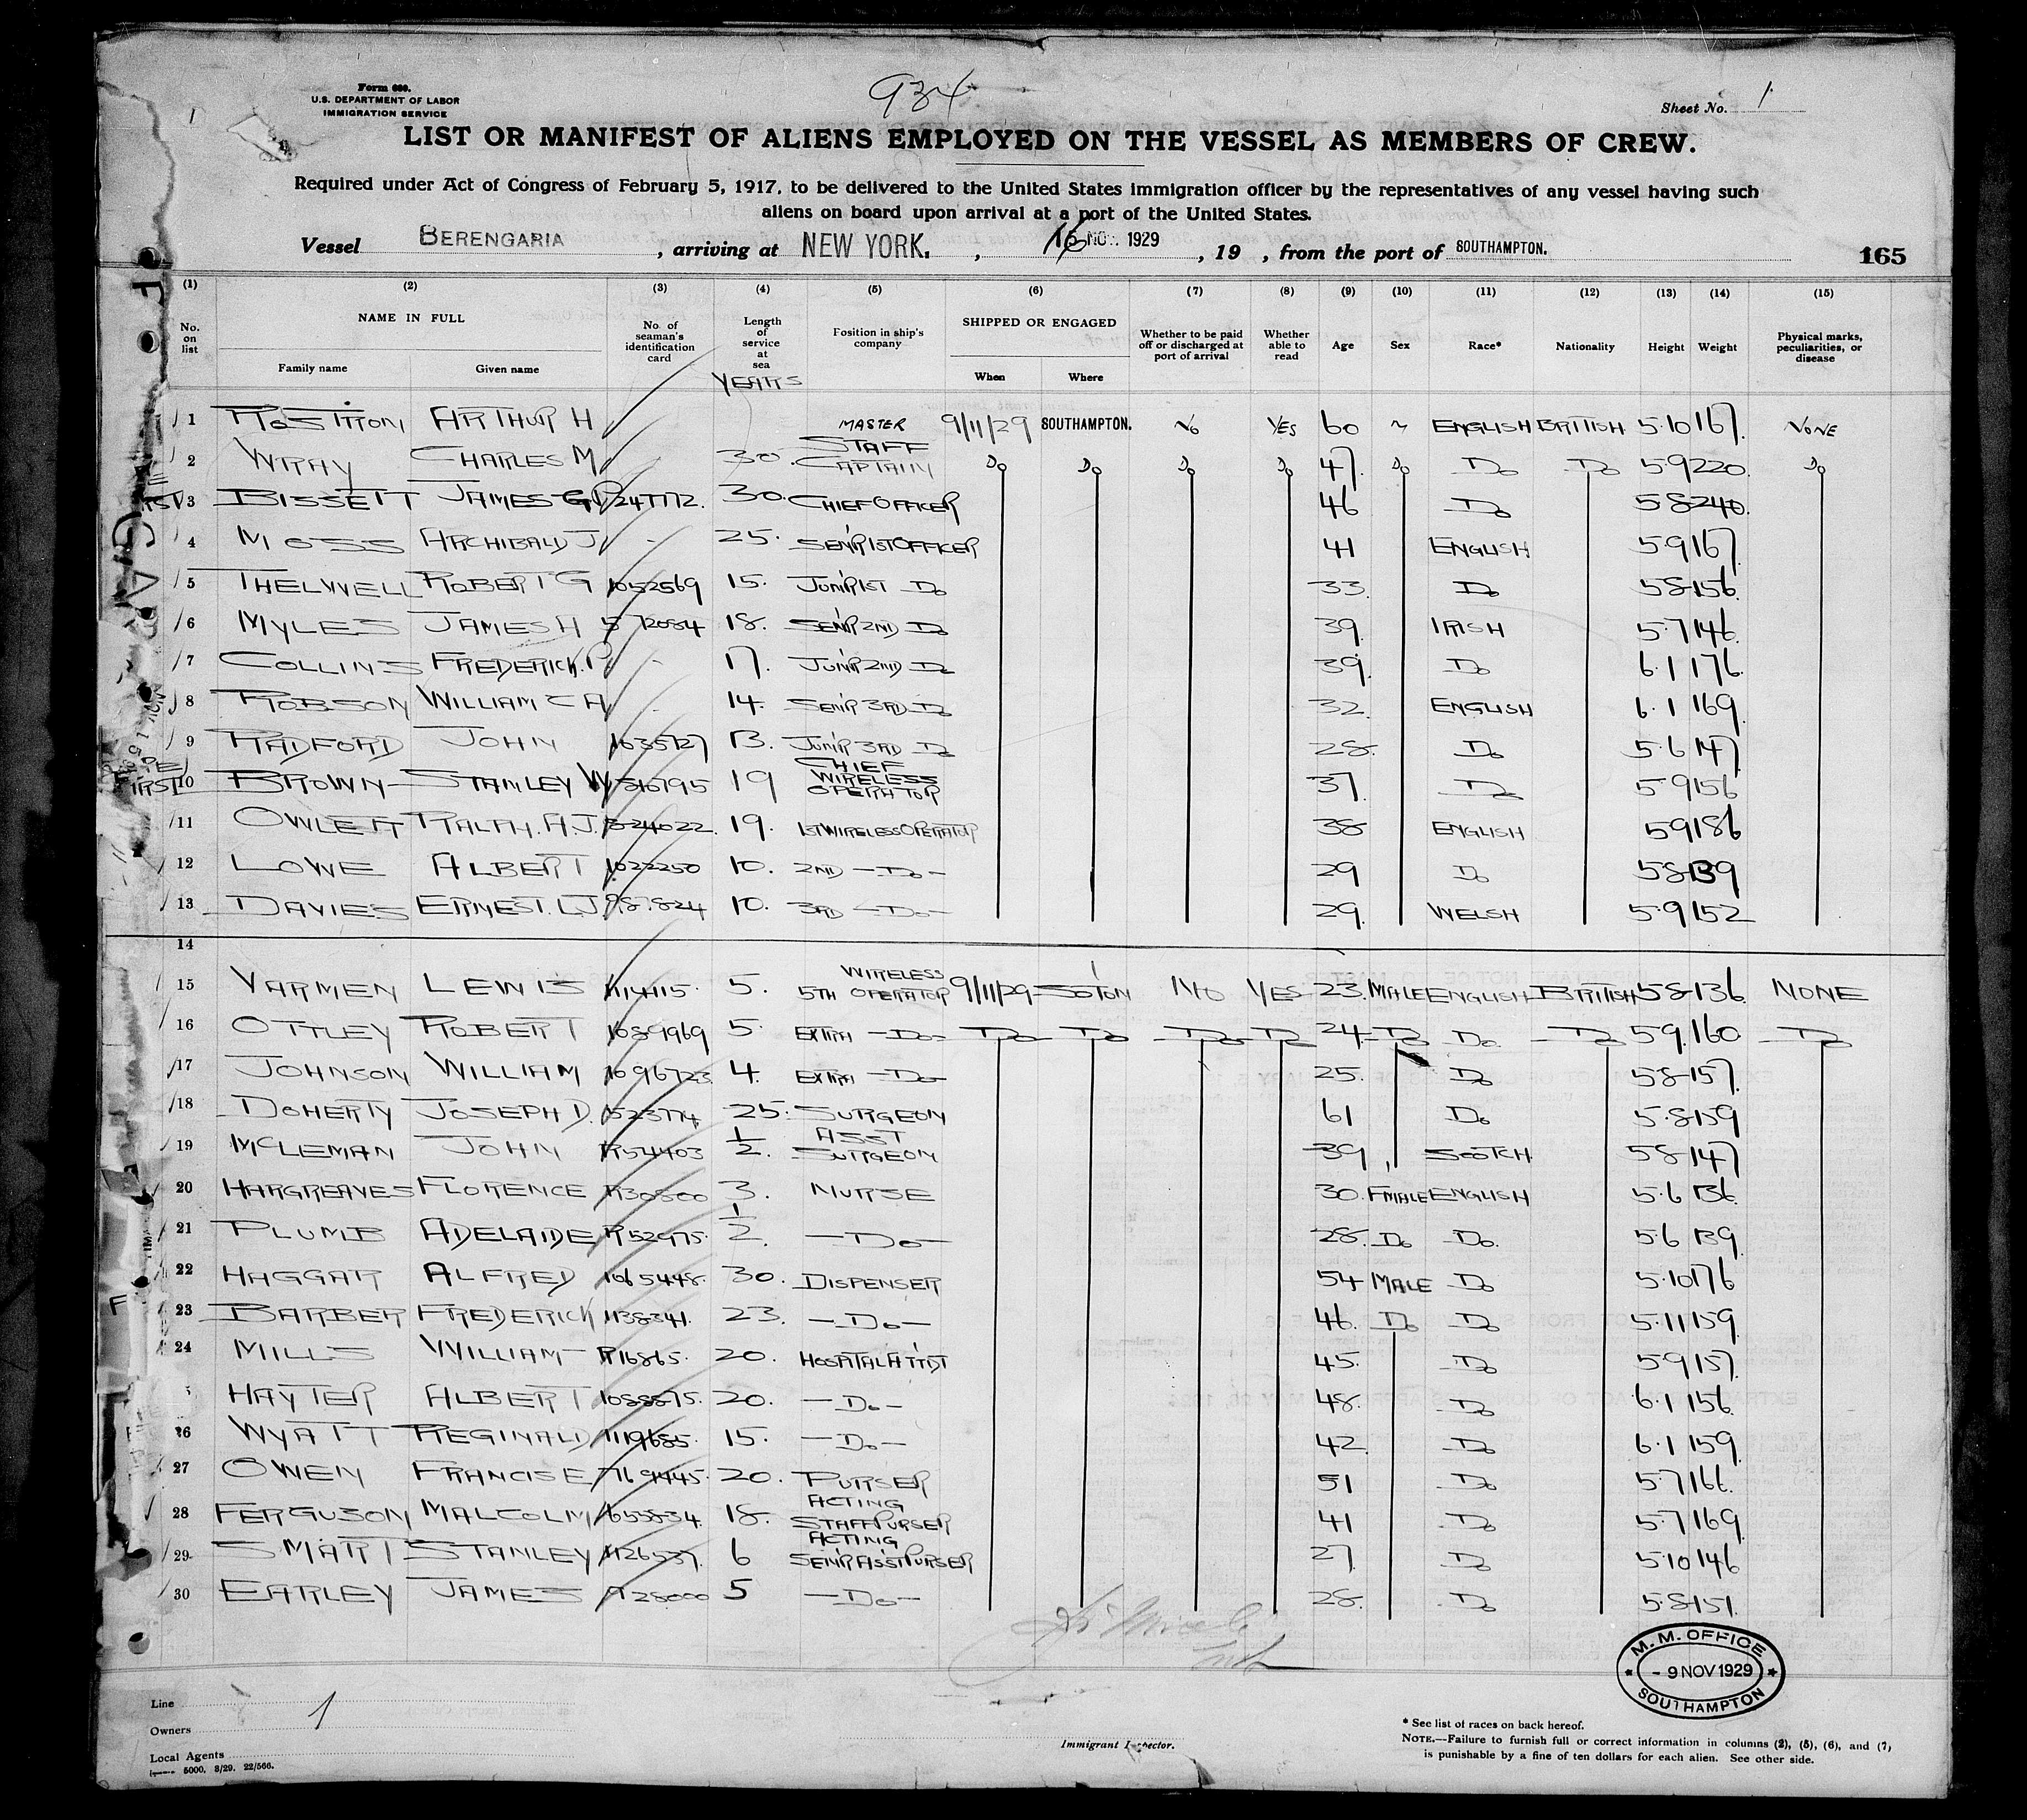 Form 680.
U.S. DEPARTMENT OF LABOR
IMMIGRATION SERVICE
934
Sheet No. 1
LIST OR MANIFEST OF ALIENS EMPLOYED ON THE VESSEL AS MEMBERS OF CREW.
Required under Act of Congress of February 5, 1917, to be delivered to the United States immigration officer by the representatives of any vessel having such
aliens on board upon arrival at a port of the United States.
Vessel BERENGARIA, arriving at NEW YORK., 16 NOV. 1929, 19 , from the port of SOUTHAMPTON. 165
(1) (2) (3) (4) (5) (6) (7) (8) (9) (10) (11) (12) (13) (14) (15)
No. on list NAME IN FULL Family name Given name No. of seaman's identification card Length of service at sea YEARS Position in ship's company SHIPPED OR ENGAGED When Where Whether to be paid off or discharged at port of arrival Whether able to read Age Sex Race* Nationality Height Weight Physical marks, peculiarities, or disease
1 ROSTRON ARTHUR H MASTER 9/11/29 SOUTHAMPTON. No YES 60 ENGLISH BRITISH 5.10 167. NONE
2 WRAY CHARLES M 30. STAFF CAPTAIN Do Do Do Do 47. Do Do Do 5.9 220. Do
3 BISSETT JAMES G.P 247772. 30. CHIEF OFFICER 46 Do 5.8 240.
4 MOSS ARCHIBALD J - 25. SEN'R 1ST OFFICER 41 ENGLISH 5.9 167
5 THELWELL ROBERT G 1052569 15. JUN'R 1ST Do 33. Do 5.8 156.
6 MYLES JAMES H 572084 18. SEN'R 2ND Do 39. IRISH 5.7 146.
7 COLLINS FREDERICK.P. - 17. JUN'R 2ND Do 39. Do 6.1 176.
8 ROBSON WILLIAM C A - 14. SEN'R 3RD Do 32. ENGLISH 6.1 169.
9 RADFORD JOHN 1035727 13. JUN'R 3RD Do 28. Do 5.6 147
10 BROWN STANLEY W 316795 19 CHIEF WIRELESS OPERATOR 37. Do 5.9 156
11 OWLETT RALPH. A.J. 324022. 19. 1ST WIRELESS OPERATOR 38 ENGLISH 5.9 186
12 LOWE ALBERT 1022250 10. 2ND - Do - 29 Do 5.8 139
13 DAVIES ERNEST. L.J. 987824 10. 3RD - Do - 29. WELSH 5.9 152
14
15 YARMEN LEWIS 1114115. 5. 5TH WIRELESS OPERATOR 9/11/29 SOTON NO YES 23. MALE ENGLISH BRITISH 5.8 136. NONE
16 OTTLEY ROBERT 1089969 5. EXTRA - Do - Do Do Do Do 24. Do Do. Do 5.9. 160 Do
17 JOHNSON WILLIAM 1096723. 4. EXTRA - Do - 25. Do 5.8 157.
18 DOHERTY JOSEPH D. 523774 25. SURGEON 61 Do 5.8 159
19 McLEMAN JOHN R54403 1/2. ASST SURGEON 39 SCOTCH 5.8 147
20 HARGREAVES FLORENCE R30800 3. NURSE 30. FMALE ENGLISH 5.6 136.
21 PLUMB ADELAIDE R52975. 1/2. - Do - 28. Do Do. 5.6 139.
22 HAGGAR ALFRED 1065448. 30. DISPENSER 54 MALE Do 5.10 176
23 BARBER FREDERICK 1138341. 23. - Do - 46. Do Do 5.11 159.
24 MILLS WILLIAM R16865. 20. HOSPITAL ATTDT 45. Do 5.9 157.
HAYTER ALBERT 1088875. 20. - Do - 48. Do 6.1 156.
26 WYATT REGINALD 1119685. 15. - Do - 42. Do 6.1 159.
27 OWEN FRANCIS E 769445. 20. PURSER 51 Do 5.7 166.
28 FERGUSON MALCOLM 655834. 18. ACTING STAFF PURSER 41 Do 5.7 169.
29 SMART STANLEY 1126537. 6 ACTING SEN'R ASST PURSER 27. Do 5.10 146
30 EARLEY JAMES R28000 5 - Do - 28. Do 5.8 151.
M. M. OFFICE
- 9 NOV 1929
SOUTHAMPTON
Line
Owners 1
Local Agents
5000. 8/29. 22/566.
Immigrant Inspector.
* See list of races on back hereof.
NOTE.—Failure to furnish full or correct information in columns (2), (5), (6), and (7),
is punishable by a fine of ten dollars for each alien. See other side.